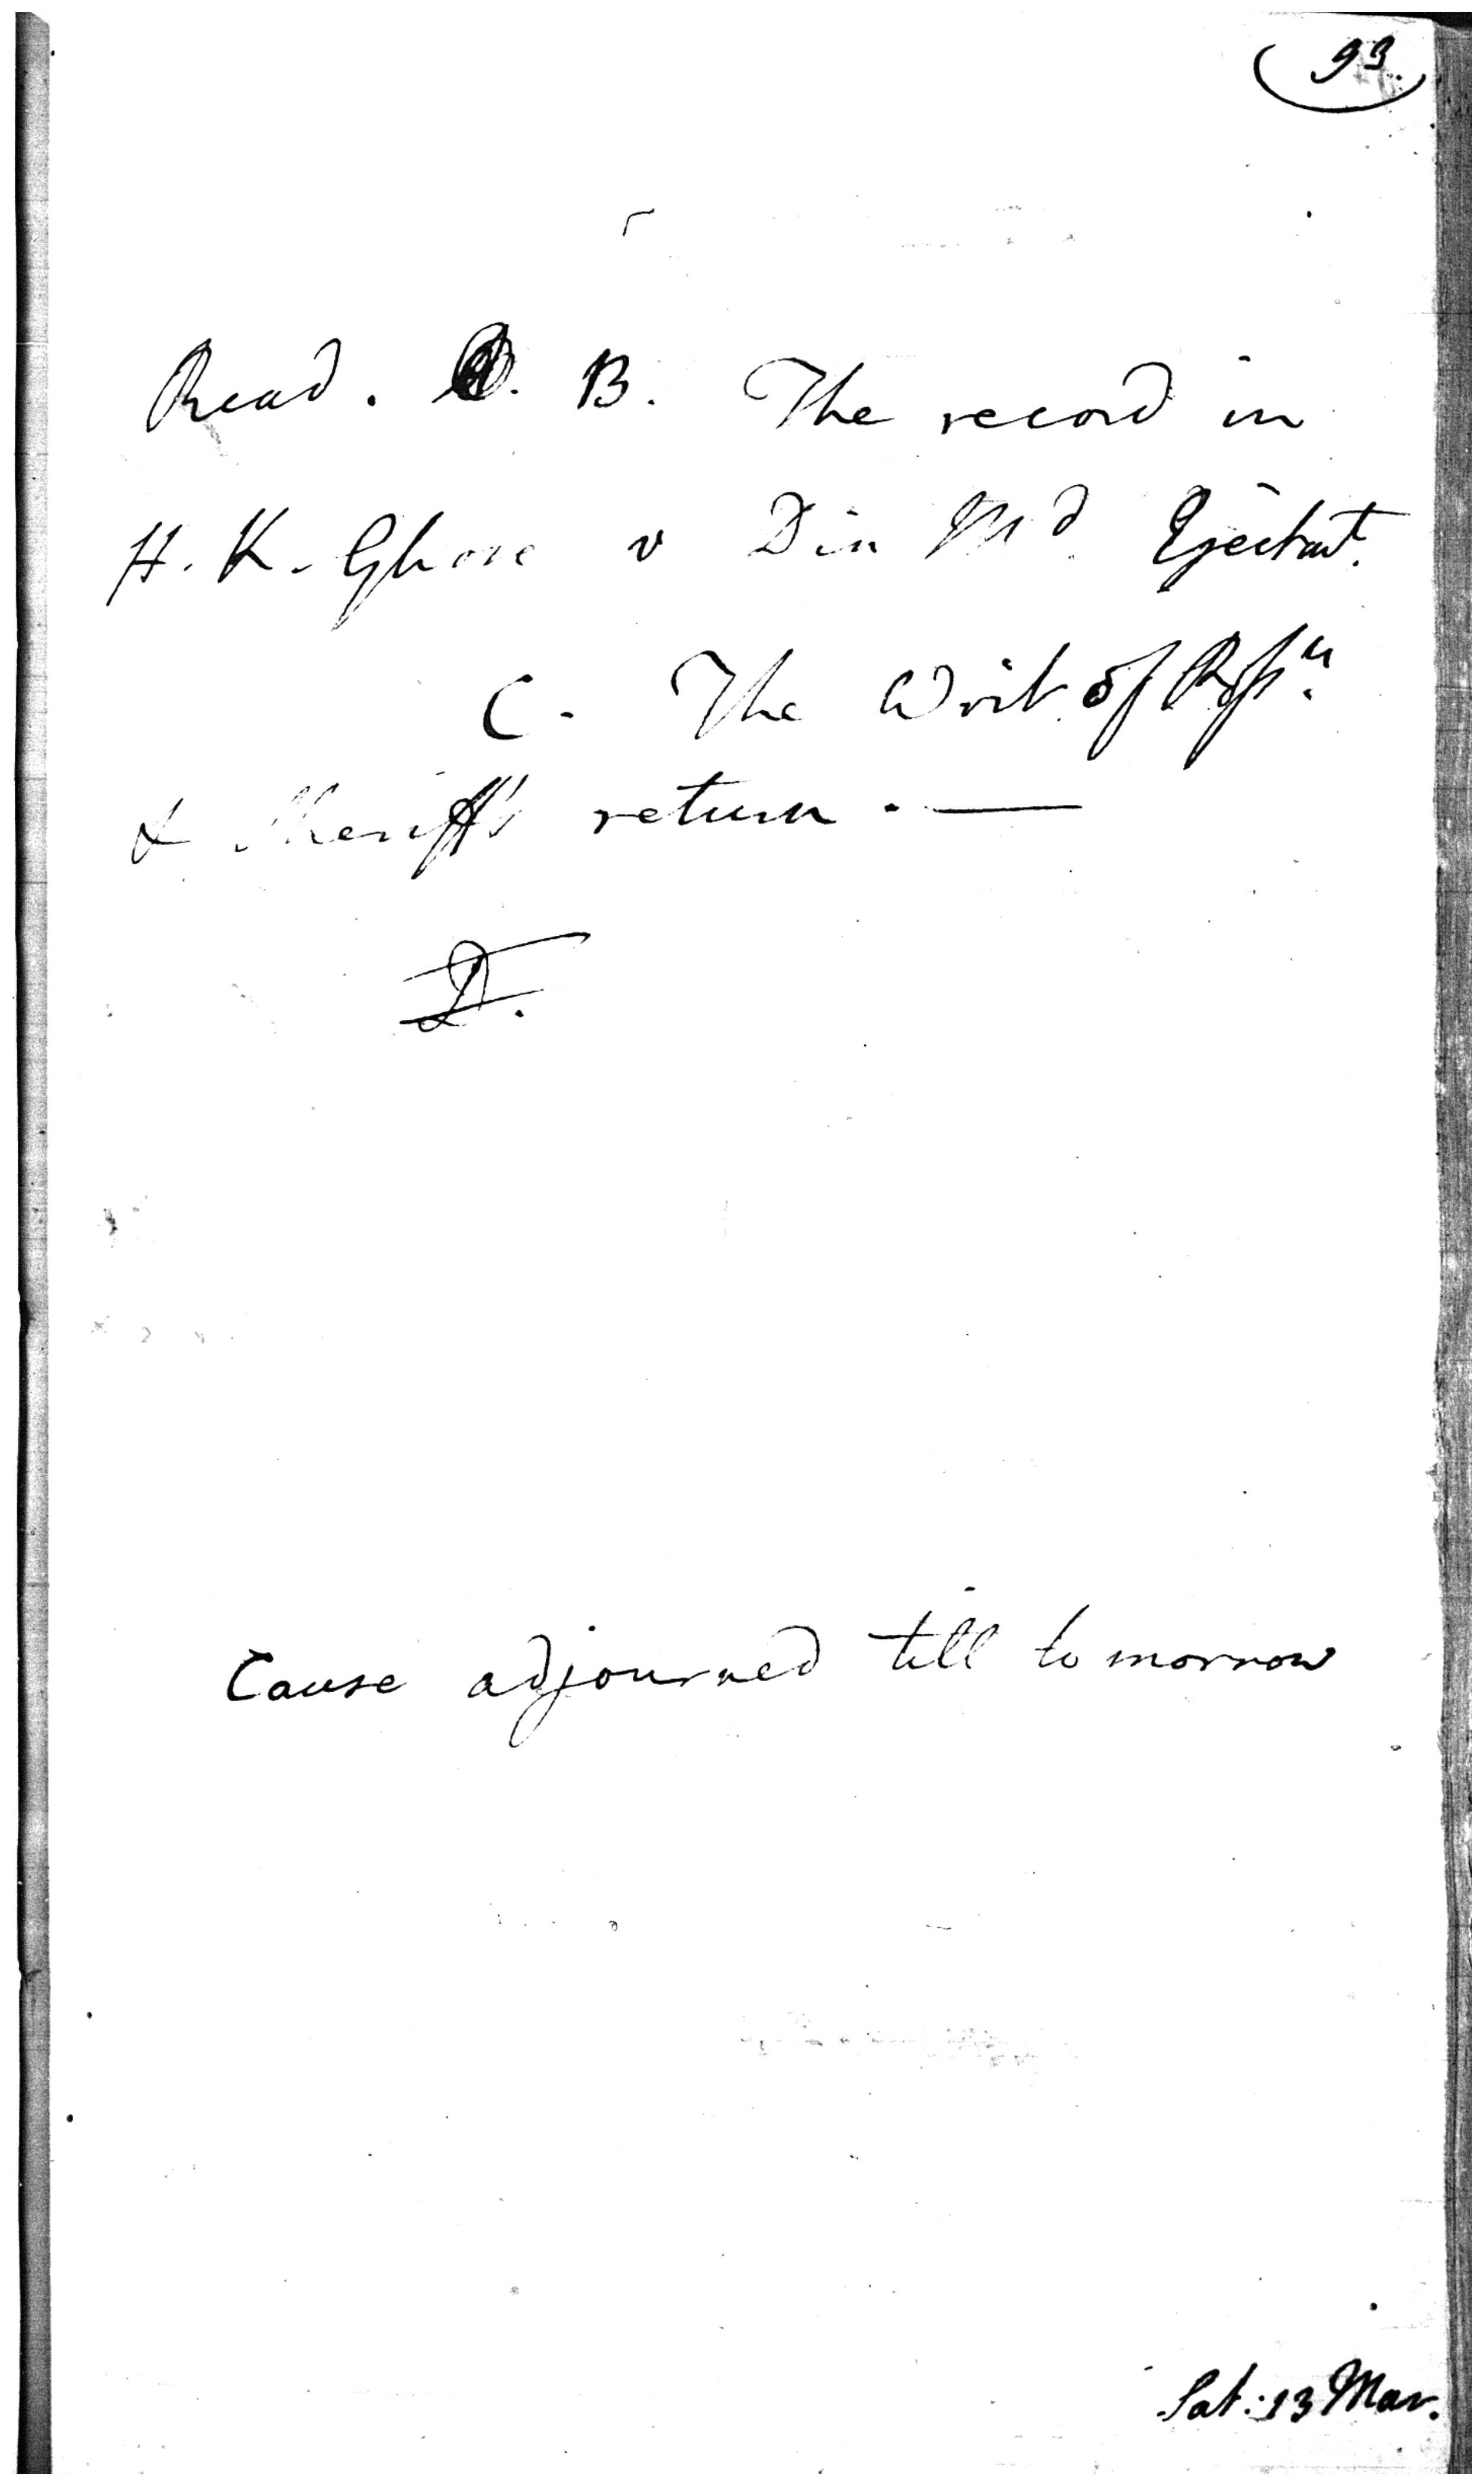 93.
Read. B. The record in
H. K. Ghose v Din Md Ejectmt.
C. The Writ of Possn.
& Sheriff's return. —
D.
Cause adjourned till to morrow
Sat: 13 Mar.